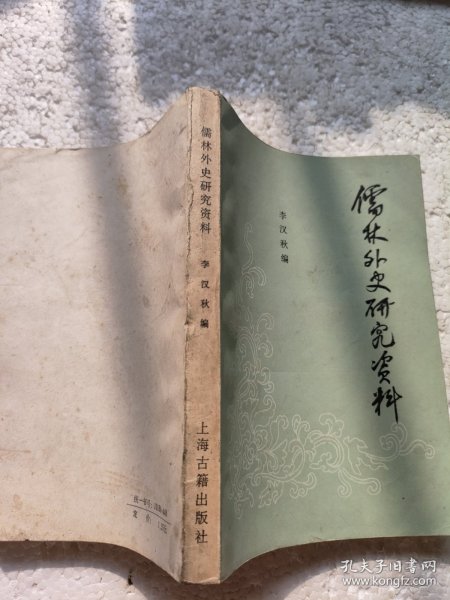 儒林外史研究资料
李汉秋编
上海古籍出版社
李汉秋编
儒林外史研究资料
统一书号:
定价:
孔夫子旧书网
www.kongfz.com